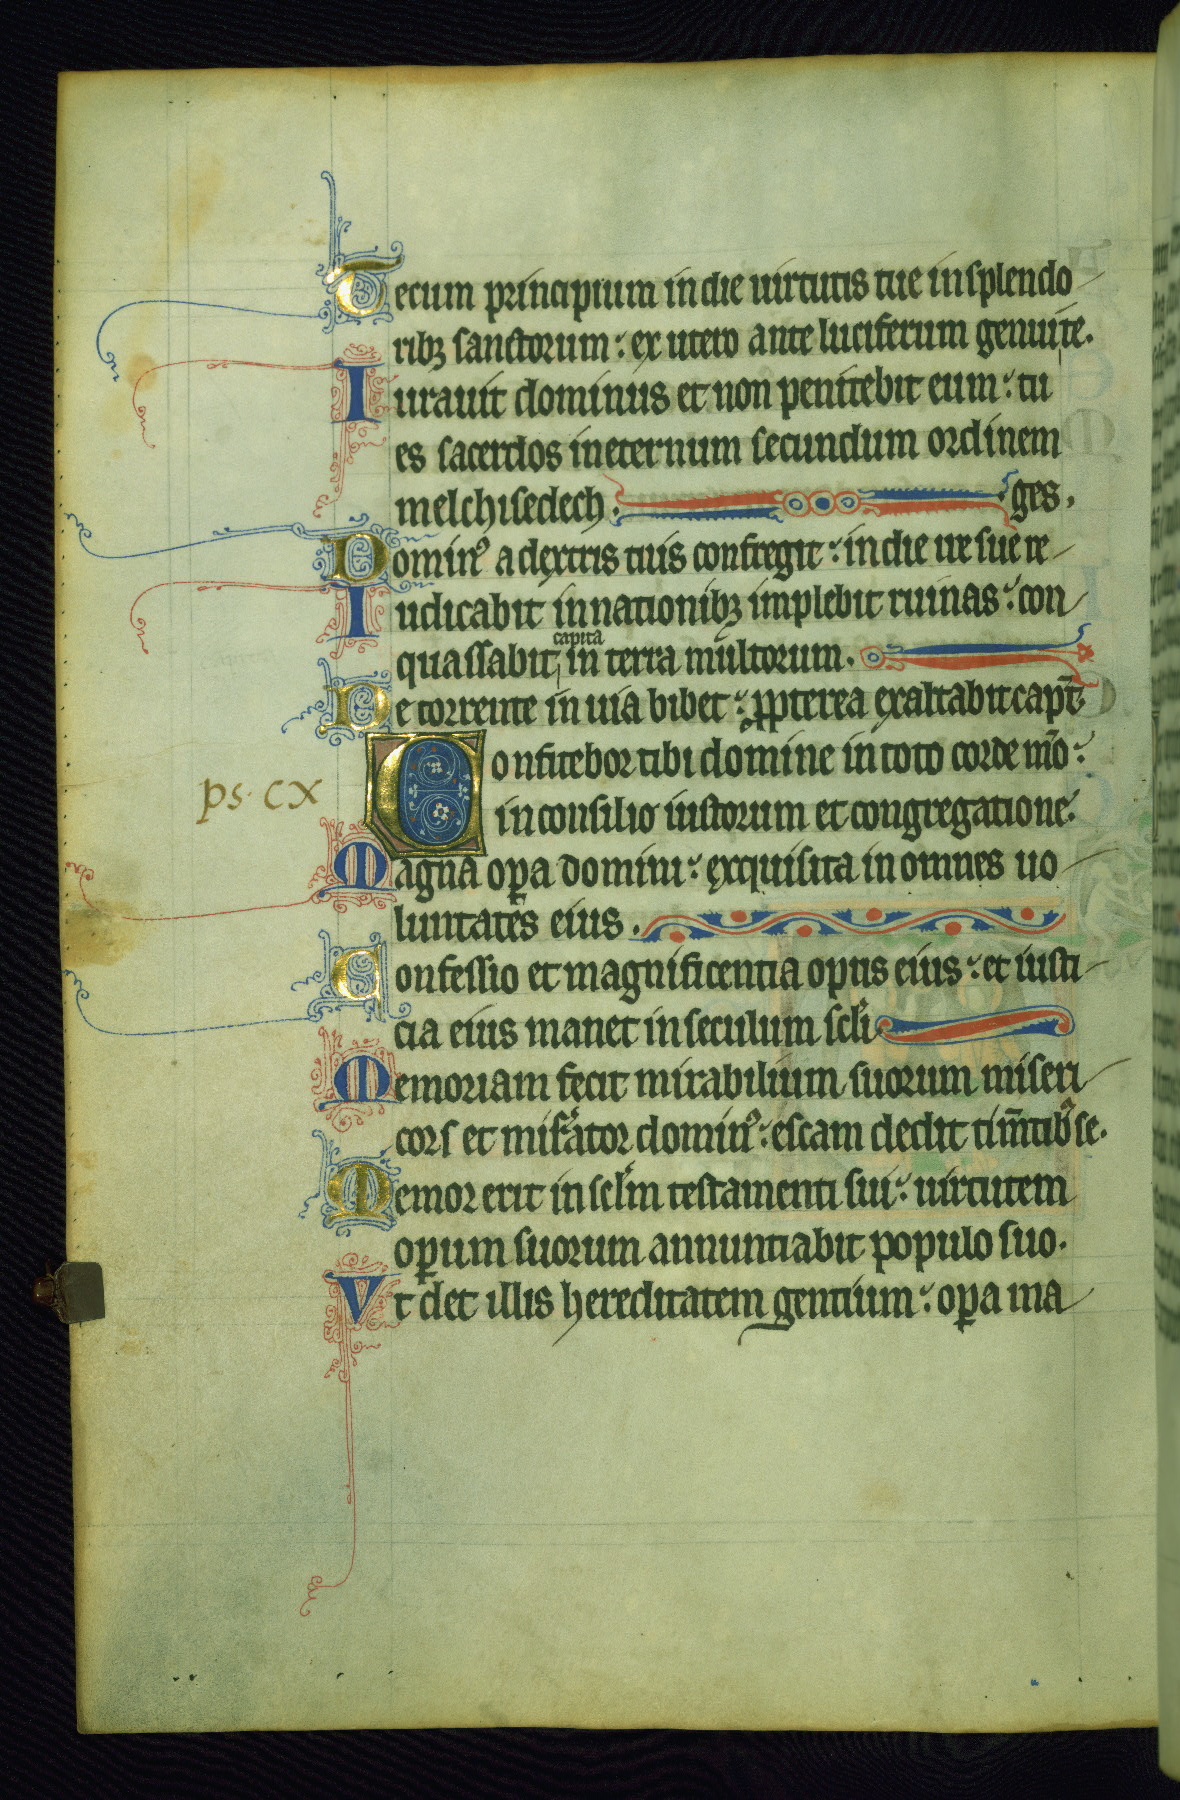 Tecum principium in die uirtutis tue in splendo
ribꝫ sanctorum: ex utero ante luciferum genui te.
Iurauit dominus et non penitebit eum: tu
es sacerdos in eternum secundum ordinem
melchisedech. ges.
Dominꝰ a dextris tuis confregit: in die ire sue re
Iudicabit in nationibꝫ implebit ruinas: con
capita
quassabit in terra multorum.
De torrente in uia bibet: ꝓpterea exaltabit cap̄t
Confitebor tibi domine in toto corde m̄o:
ps. CX
in consilio iustorum et congregatione.
Magna oꝑa domini: exquisita in omnes uo
luntates eius.
Confessio et magnificentia opis eius: et iusti
cia eius manet in seculum scl̄i
Memoriam fecit mirabilium suorum miseri
cors et misʳator dominꝰ: escam dedit tim̄tibꝰ se.
Memor erit in scl̄m testamenti sui: uirtutem
oꝑum suorum annuntiabit populo suo.
Vt det illis hereditatem gentium: oꝑa ma